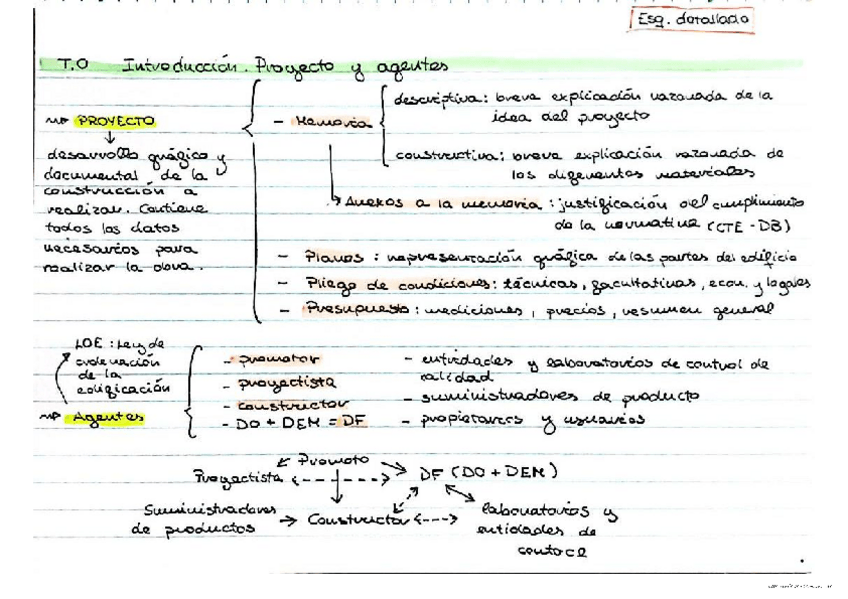 Esq. detallado
T.0 Introducción. Proyecto y agentes
PROYECTO
desarrollo gráfico y
documental de la
construcción a
realizar. Contiene
todos los datos
necesarios para
realizar la obra.
- Memoria
descriptiva: breve explicación razonada de la
idea del proyecto
constructiva: breve explicación razonada de
los diferentes materiales
Anexos a la memoria: justificación del cumplimiento
de la normativa (CTE-DB)
- Planos: representación gráfica de las partes del edificio
- Pliego de condiciones: técnicas, facultativas, econ. y legales
- Presupuesto: mediciones, precios, resumen general
LOE: Ley de
ordenación
de la
edificación
Agentes
- promotor
- proyectista
- constructor
- DO + DEM = DF
- entidades y laboratorios de control de
calidad
- suministradores de producto
- propietarios y usuarios
Promoto
Proyectista
DF (DO + DEM)
Suministradores
de productos
Constructor
laboratorios y
entidades de